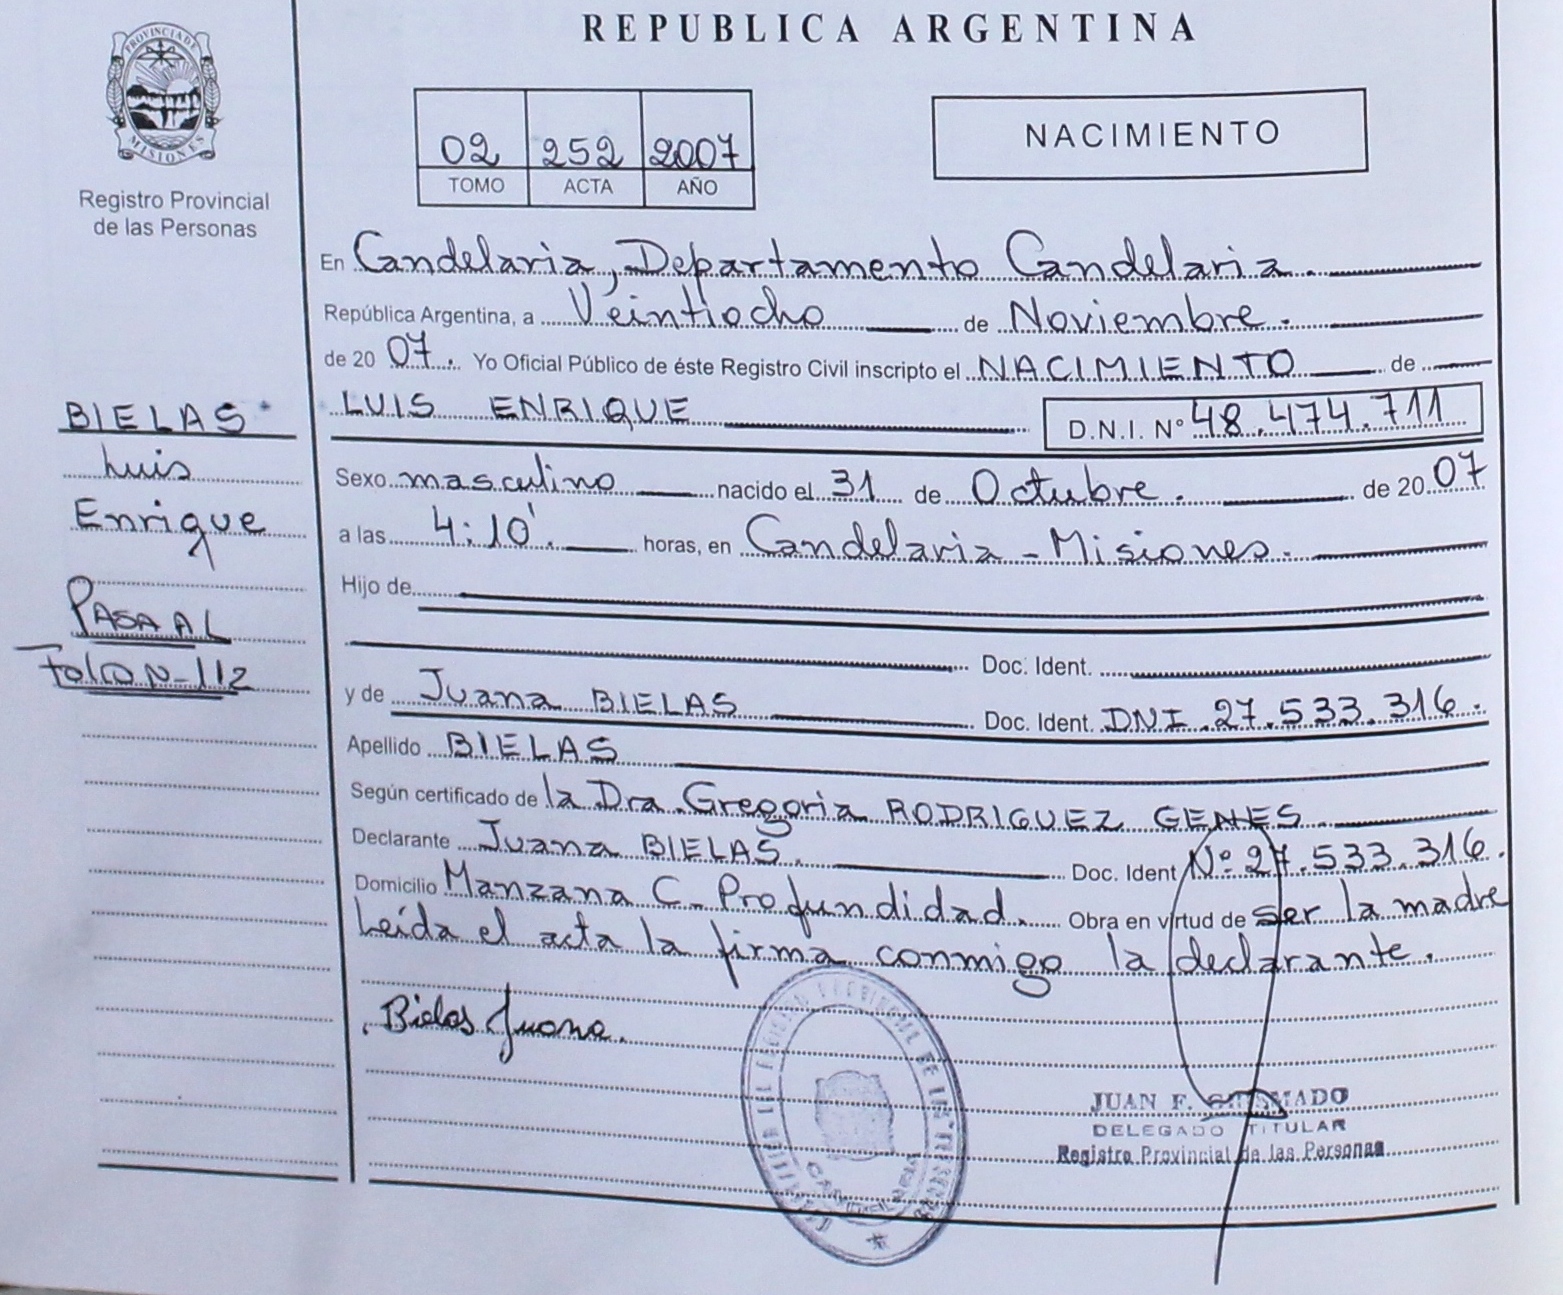 REPUBLICA ARGENTINA
PROVINCIA DE
MISIONES
Registro Provincial
de las Personas
02 252 2007
TOMO ACTA AÑO
NACIMIENTO
En Candelaria, Departamento Candelaria.
República Argentina, a Veintiocho de Noviembre.
de 20 07. Yo Oficial Público de éste Registro Civil inscripto el NACIMIENTO de
LUIS ENRIQUE D.N.I. Nº 48.474.711
Sexo masculino nacido el 31 de Octubre. de 20 07
a las 4:10'. horas, en Candelaria - Misiones.
Hijo de
Doc. Ident.
y de Juana BIELAS Doc. Ident. DNI 27.533.316.
Apellido BIELAS
Según certificado de la Dra. Gregoria RODRIGUEZ GENES
Declarante Juana BIELAS. Doc. Ident Nº 27.533.316.
Domicilio Manzana C - Profundidad. Obra en virtud de ser la madre
Leída el acta la firma conmigo la declarante.
Bielas Juana.
BIELAS
Luis
Enrique
PASA AL
Folio N-112
JUAN F.
DELEGADO TITULAR
Registro Provincial de las Personas